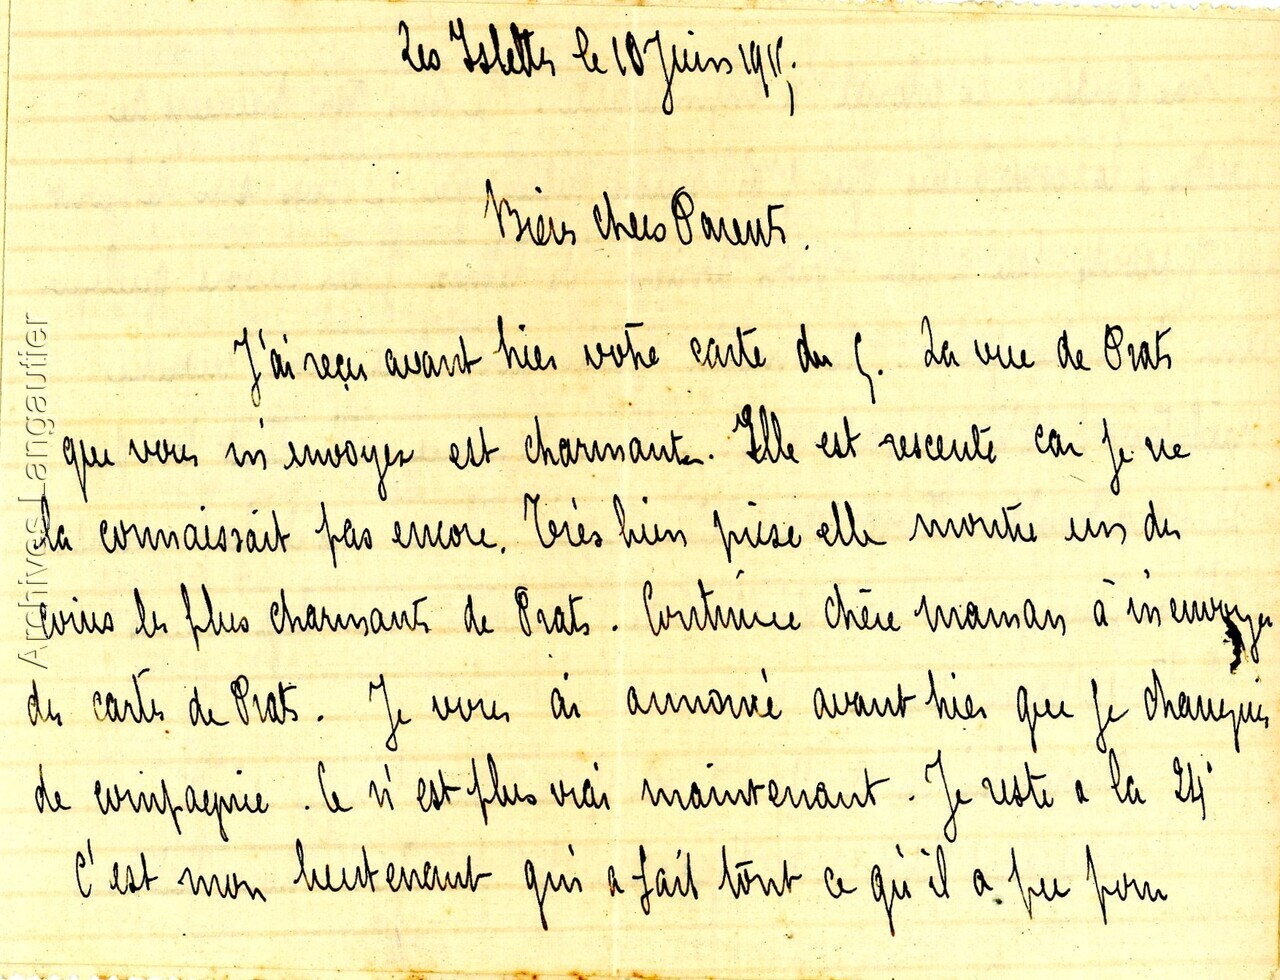 Les Islettes le 10 Juin 1915
Bien chers Parents.
J'ai reçu avant hier votre carte du 5. La vue de Prats
que vous m'envoyez est charmante. Elle est rescente car je ne
la connaissait pas encore. Très bien prise elle montre un des
coins les plus charmants de Prats. Continue chère maman à m'envoyer
des cartes de Prats. Je vous ai annoncé avant hier que je changeais
de compagnie. Ce n'est plus vrai maintenant. Je reste a la 24e
C'est mon lieutenant qui a fait tout ce qu'il a pu pour
Archives Langautier